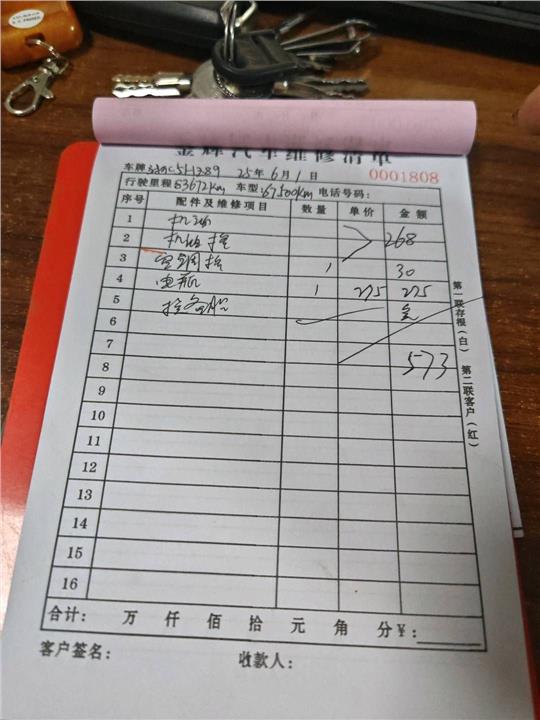 金辉汽车维修清单
车牌 51289 25年6月1日 0001808
行驶里程53672km 车型: 67500km 电话号码:
序号 配件及维修项目 数量 单价 金额
1 机油
2 机油格 268
3 空调格 1 30
4 电瓶 1 275 275
5
6
7
8 573
9
10
11
12
13
14
15
16
合计: 万 仟 佰 拾 元 角 分 ¥:
客户签名: 收款人:
第一联存根(白) 第二联客户(红)